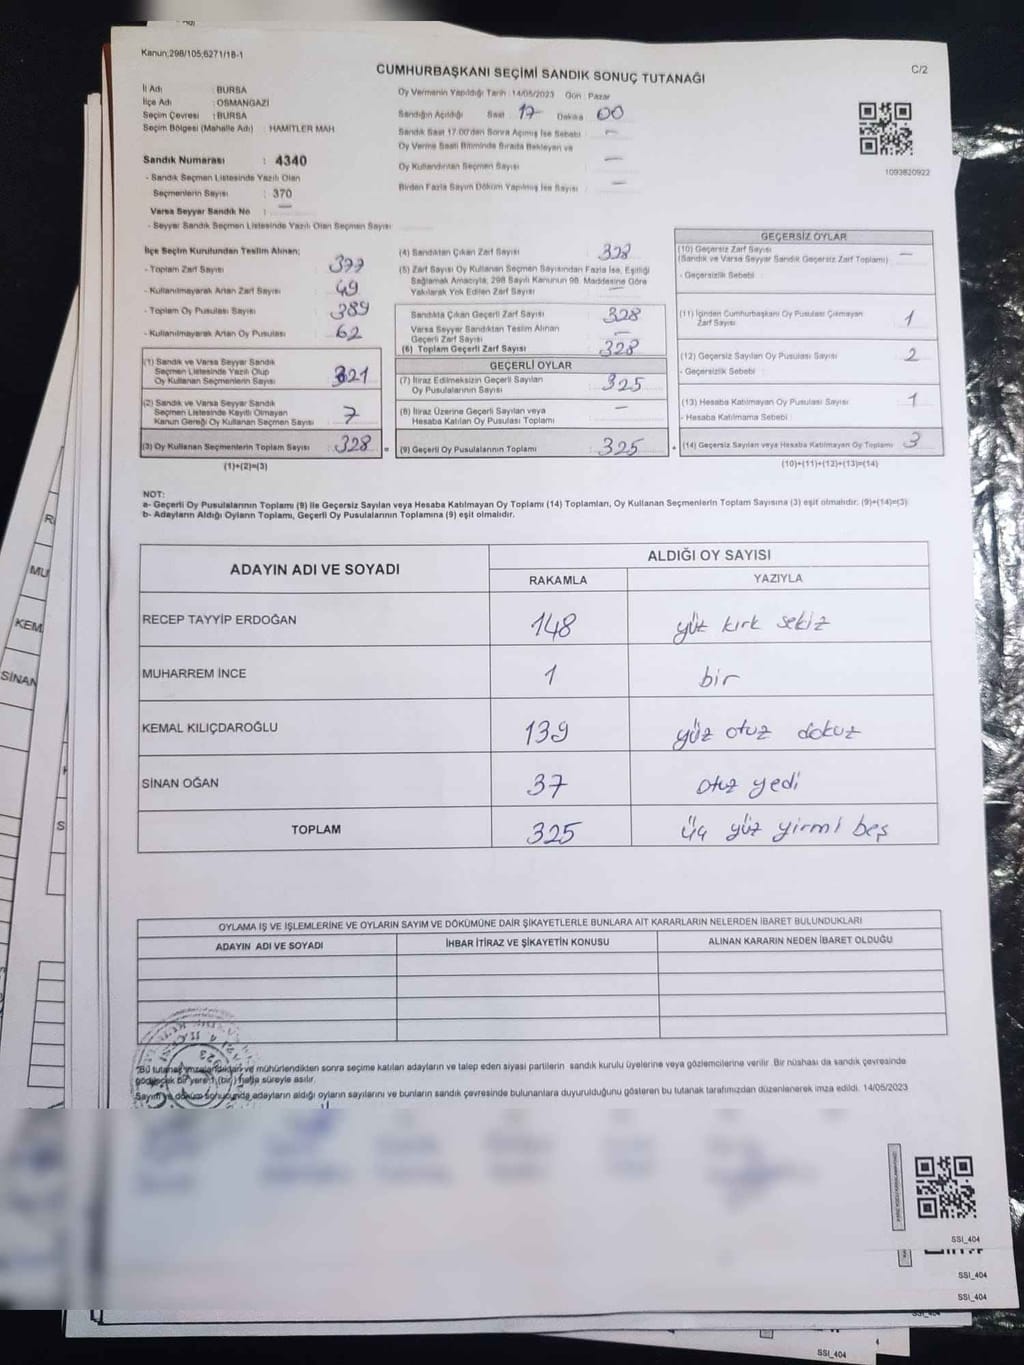 Kanun;298/105;6271/18-1
CUMHURBAŞKANI SEÇİMİ SANDIK SONUÇ TUTANAĞI
C/2
İl Adı : BURSA
İlçe Adı : OSMANGAZİ
Seçim Çevresi : BURSA
Seçim Bölgesi (Mahalle Adı) : HAMİTLER MAH
Sandık Numarası : 4340
- Sandık Seçmen Listesinde Yazılı Olan
Seçmenlerin Sayısı : 370
Varsa Seyyar Sandık No : —
- Seyyar Sandık Seçmen Listesinde Yazılı Olan Seçmen Sayısı
Oy Vermenin Yapıldığı Tarih : 14/05/2023 Gün : Pazar
Sandığın Açıldığı Saat 17 Dakika 00
Sandık Saat 17:00'den Sonra Açılmış İse Sebebi : —
Oy Verme Saati Bitiminde Sırada Bekleyen ve
Oy Kullandırılan Seçmen Sayısı : —
Birden Fazla Sayım Döküm Yapılmış İse Sayısı : —
1093820922
İlçe Seçim Kurulundan Teslim Alınan;
- Toplam Zarf Sayısı : 377
- Kullanılmayarak Artan Zarf Sayısı : 49
- Toplam Oy Pusulası Sayısı : 389
- Kullanılmayarak Artan Oy Pusulası : 62
(1) Sandık ve Varsa Seyyar Sandık
Seçmen Listesinde Yazılı Olup
Oy Kullanan Seçmenlerin Sayısı : 321
(2) Sandık ve Varsa Seyyar Sandık
Seçmen Listesinde Kayıtlı Olmayan
Kanun Gereği Oy Kullanan Seçmen Sayısı : 7
(3) Oy Kullanan Seçmenlerin Toplam Sayısı : 328 =
(1)+(2)=(3)
(4) Sandıktan Çıkan Zarf Sayısı : 328
(5) Zarf Sayısı Oy Kullanan Seçmen Sayısından Fazla İse, Eşitliği
Sağlamak Amacıyla, 298 Sayılı Kanunun 98. Maddesine Göre
Yakılarak Yok Edilen Zarf Sayısı : —
Sandıkta Çıkan Geçerli Zarf Sayısı : 328
Varsa Seyyar Sandıktan Teslim Alınan
Geçerli Zarf Sayısı : —
(6) Toplam Geçerli Zarf Sayısı : 328
GEÇERLİ OYLAR
(7) İtiraz Edilmeksizin Geçerli Sayılan
Oy Pusulalarının Sayısı : 325
(8) İtiraz Üzerine Geçerli Sayılan veya
Hesaba Katılan Oy Pusulaları Toplamı : —
(9) Geçerli Oy Pusulalarının Toplamı : 325 +
GEÇERSİZ OYLAR
(10) Geçersiz Zarf Sayısı
(Sandık ve Varsa Seyyar Sandık Geçersiz Zarf Toplamı) : —
- Geçersizlik Sebebi :
(11) İçinden Cumhurbaşkanı Oy Pusulası Çıkmayan
Zarf Sayısı : 1
(12) Geçersiz Sayılan Oy Pusulası Sayısı : 2
- Geçersizlik Sebebi :
(13) Hesaba Katılmayan Oy Pusulası Sayısı : 1
- Hesaba Katılmama Sebebi :
(14) Geçersiz Sayılan veya Hesaba Katılmayan Oy Toplamı : 3
(10)+(11)+(12)+(13)=(14)
NOT:
a- Geçerli Oy Pusulalarının Toplamı (9) ile Geçersiz Sayılan veya Hesaba Katılmayan Oy Toplamı (14) Toplamları, Oy Kullanan Seçmenlerin Toplam Sayısına (3) eşit olmalıdır. (9)+(14)=(3)
b- Adayların Aldığı Oyların Toplamı, Geçerli Oy Pusulalarının Toplamına (9) eşit olmalıdır.
ADAYIN ADI VE SOYADI
ALDIĞI OY SAYISI
RAKAMLA YAZIYLA
RECEP TAYYİP ERDOĞAN 148 yüz kırk sekiz
MUHARREM İNCE 1 bir
KEMAL KILIÇDAROĞLU 139 yüz otuz dokuz
SİNAN OĞAN 37 otuz yedi
TOPLAM 325 üç yüz yirmi beş
OYLAMA İŞ VE İŞLEMLERİNE VE OYLARIN SAYIM VE DÖKÜMÜNE DAİR ŞİKAYETLERLE BUNLARA AİT KARARLARIN NELERDEN İBARET BULUNDUKLARI
ADAYIN ADI VE SOYADI İHBAR İTİRAZ VE ŞİKAYETİN KONUSU ALINAN KARARIN NEDEN İBARET OLDUĞU
*Bu tutanak imzalandıktan ve mühürlendikten sonra seçime katılan adayların ve talep eden siyasi partilerin sandık kurulu üyelerine veya gözlemcilerine verilir. Bir nüshası da sandık çevresinde
görülecek bir yere 1 (bir) hafta süreyle asılır.
Sayım ve döküm sonucunda adayların aldığı oyların sayılarını ve bunların sandık çevresinde bulunanlara duyurulduğunu gösteren bu tutanak tarafımızdan düzenlenerek imza edildi. 14/05/2023
SSI_404
SSI_404
SSI_404
SSI_404
KEM
SİNAN
MU